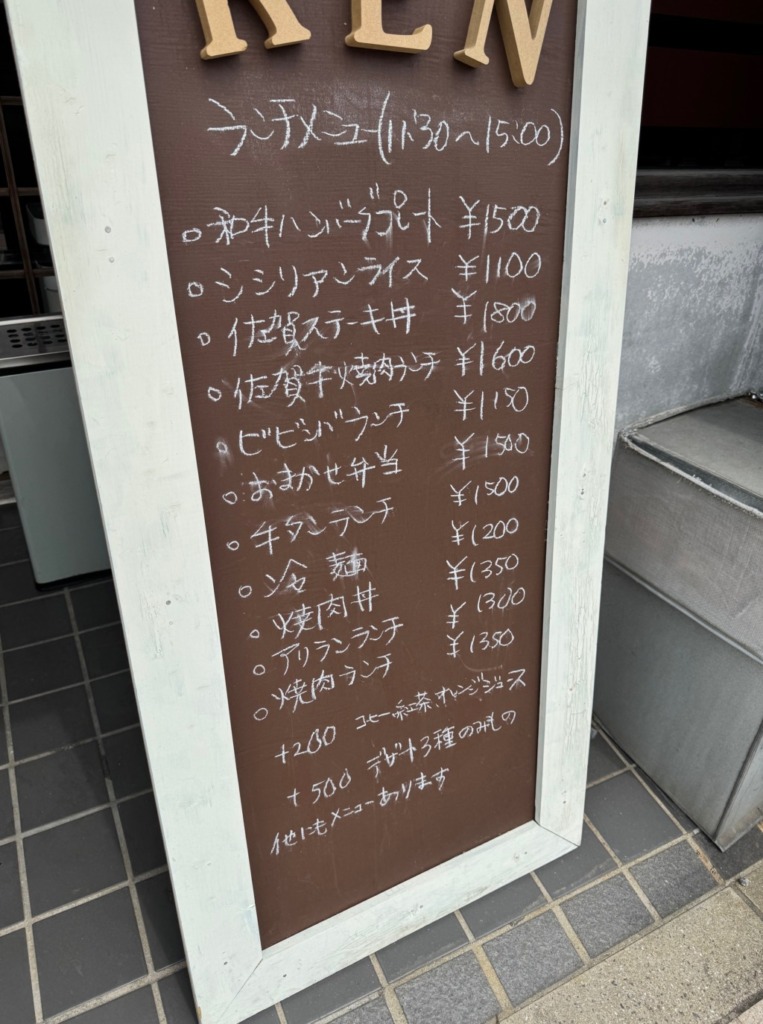 KEN
ランチメニュー(11:30〜15:00)
○ 和牛ハンバーグプレート ¥1500
○ シシリアンライス ¥1100
○ 佐賀ステーキ丼 ¥1800
○ 佐賀牛焼肉ランチ ¥1600
○ ビビンバランチ ¥1150
○ おまかせ弁当 ¥1500
○ 牛タンランチ ¥1500
○ 冷麺 ¥1200
○ 焼肉丼 ¥1350
○ アリランランチ ¥1300
○ 焼肉ランチ ¥1350
+200 コーヒー、紅茶、オレンジジュース
+500 デザート3種のみもの
他にもメニューあります